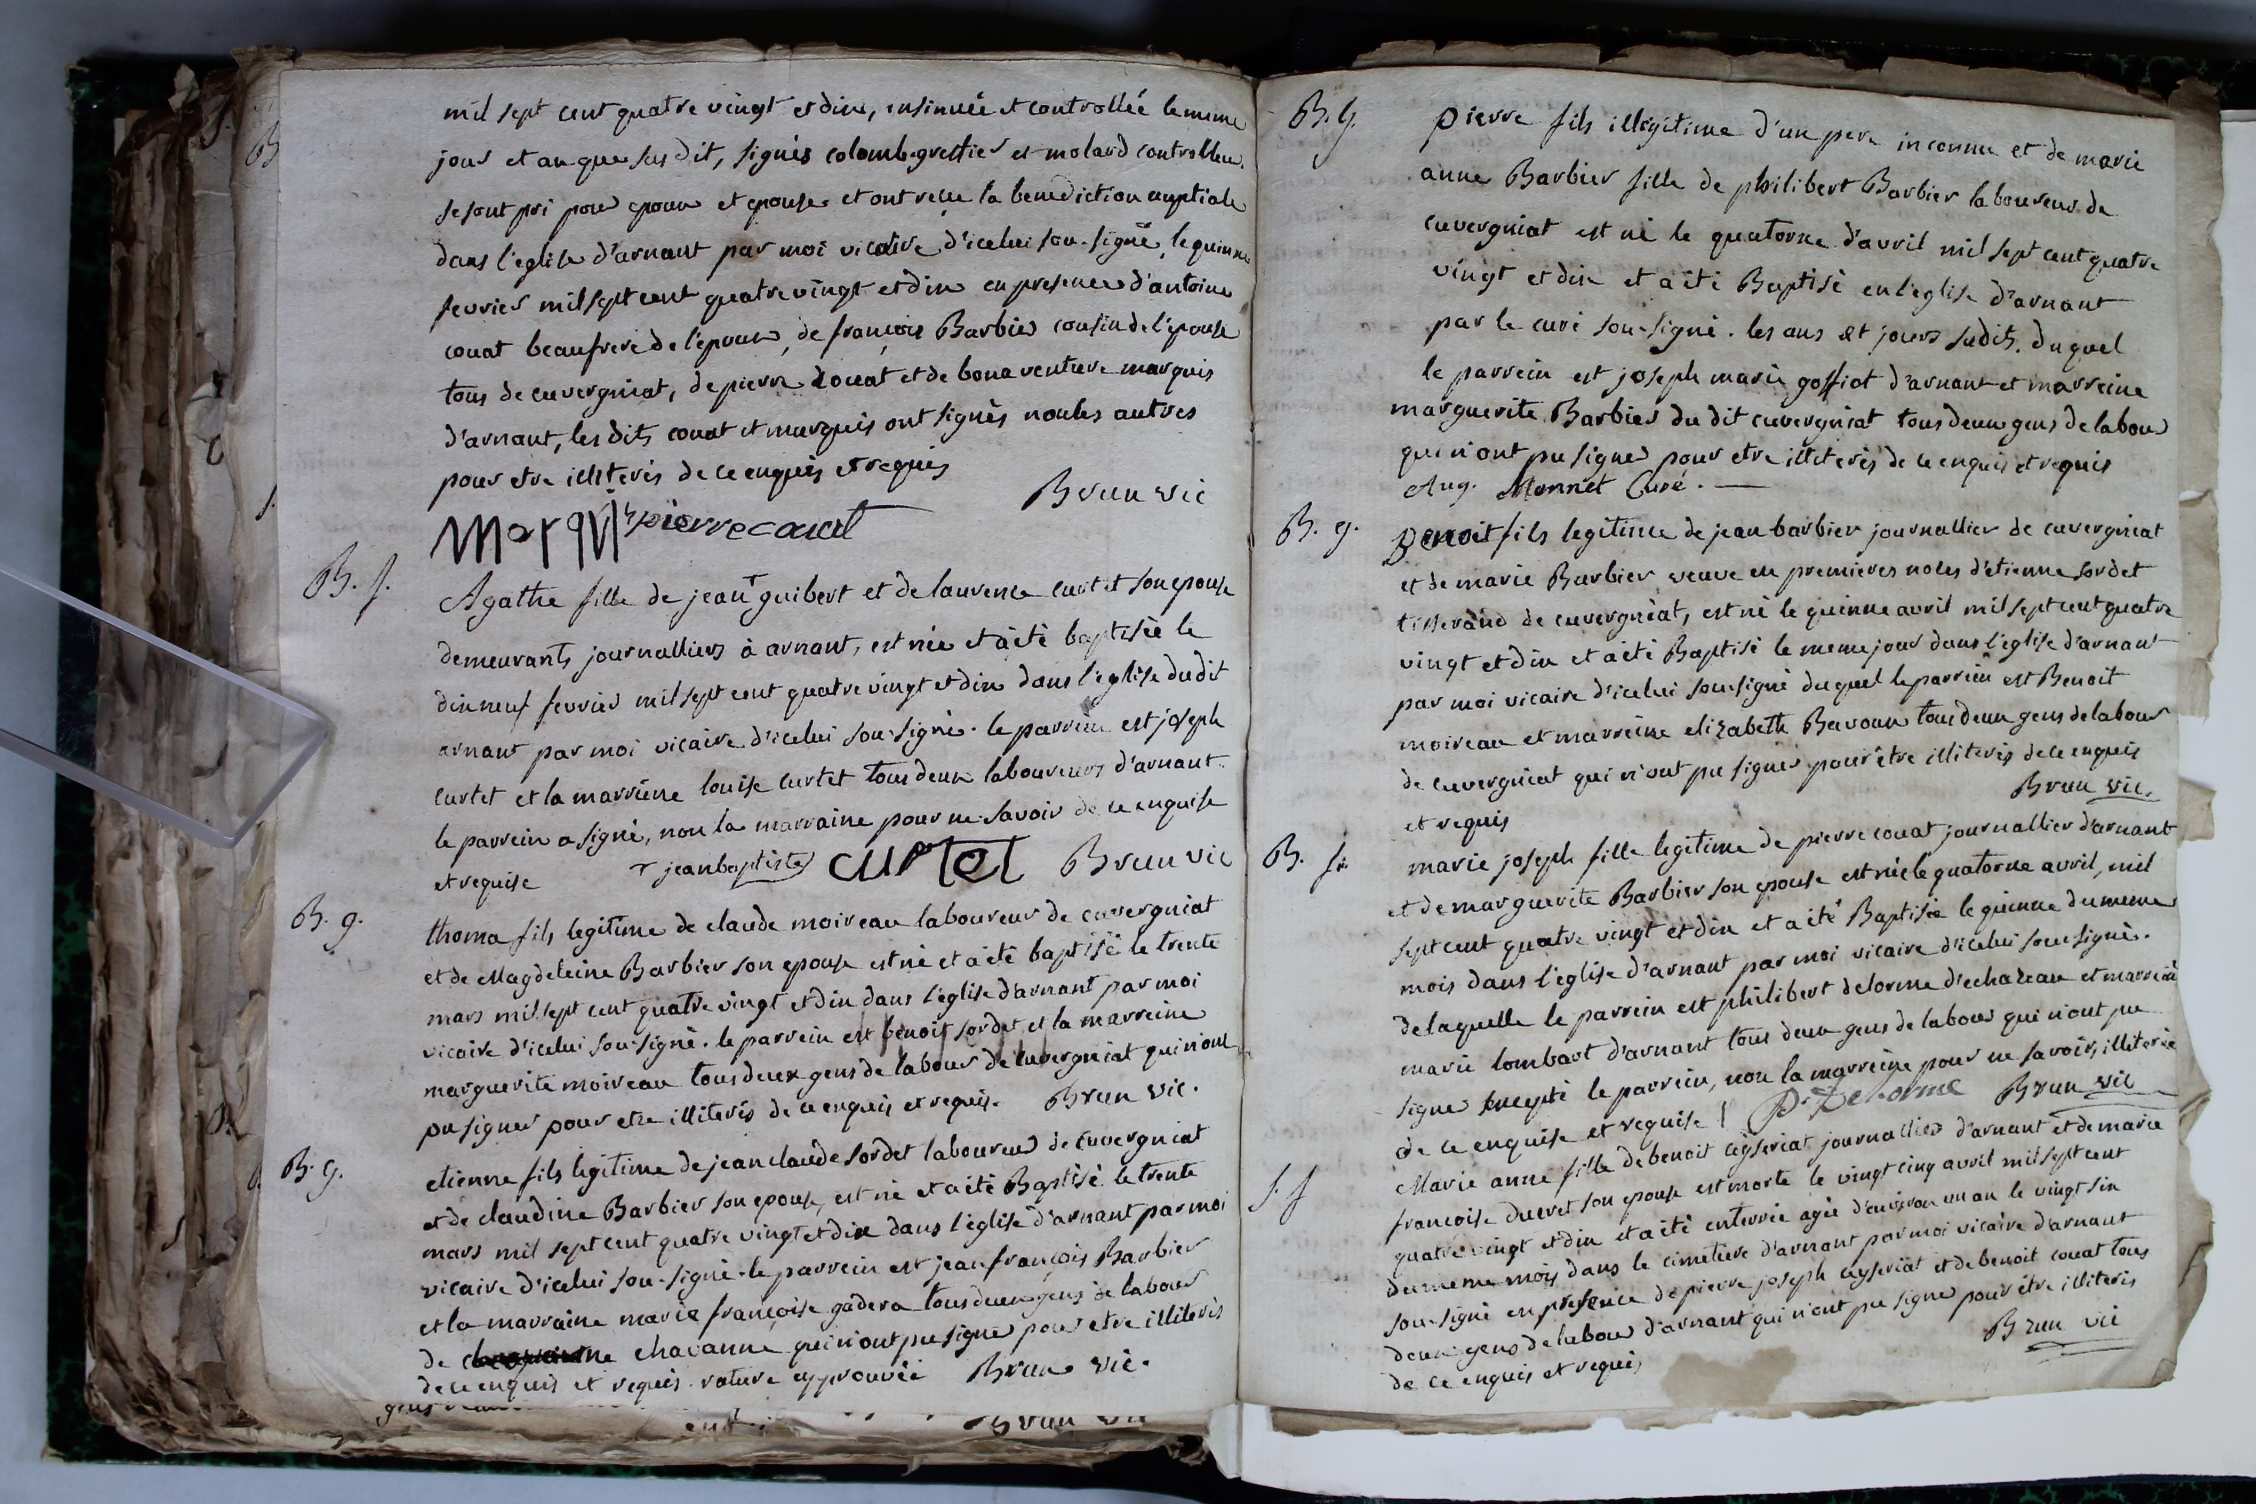 mil sept cent quatre vingt et dix, insinuée et controllée le meme
jour et an que sus dit, signés colomb greffier et molard controlleu.
se sont pri pour epoux et epouse et ont recu la benediction nuptiale
dans l'eglise d'arnant par moi vicaire d'icelui sou-signé, le quinze
fevrier mil sept cent quatre vingt et dix en presence d'antoine
couat beaufrere de l'epoux, de françois Barbier cousin de l'epouse
tous de cuvergniat, de pierre couat et de bonaventure marquis
d'arnant, les dits couat et marquis ont signés non les autres
pour etre illiterés de ce enquis et requis
Brun vic
Marquis pierre couat
B. f.
Agathe fille de jean T guibert et de laurence curtet son epouse
demeurants journalliers à arnant, est née et a été baptisée le
dixneuf fevrier mil sept cent quatre vingt et dix dans l'eglise du dit
arnant par moi vicaire d'icelui sou-signé. le parrein est joseph
curtet et la marreine louise curtet tous deux laboureurs d'arnant.
le parrein a signé, non la marraine pour ne savoir de ce enquise
et requise T jean baptiste curtet Brun vic
B. g.
thoma fils legitime de claude moireau laboureur de cuvergniat
et de Magdeleine Barbier son epouse est né et a été baptisé le trente
mars mil sept cent quatre vingt et dix dans l'eglise d'arnant par moi
vicaire d'icelui sou-signé. le parrein est benoit sordet et la marreine
marguerite moireau tous deux gens de labour de cuvergniat qui n'ont
pu signer pour etre illiterés de ce enquis et requis. Brun vic.
B. g.
etienne fils legitime de jean claude sordet laboureur de cuvergniat
et de claudine Barbier son epouse, est né et a été Baptisé le trente
mars mil sept cent quatre vingt et dix dans l'eglise d'arnant par moi
vicaire d'icelui sou-signé. le parrein est jean françois Barbier
et la marraine marie françoise gadera tous deux gens de labour
de chavanne qui n'ont pu signé pour etre illiterés
de ce enquis et requis. rature approuvée Brun vic.
Brun vic
B. g.
pierre fils illégitime d'un pere inconnu et de marie
anne Barbier fille de philibert Barbier laboureur de
cuvergniat est né le quatorze d'avril mil sept cent quatre
vingt et dix et a été Baptisé en l'eglise d'arnant
par le curé sou-signé. les ans et jours sudits. duquel
le parrein est joseph marie goffiot d'arnant et marreine
marguerite Barbier du dit cuvergniat tous deux gens de labour
qui n'ont pu signer pour etre illiterés de ce enquis et requis
Aug. Monnet Curé.
B. g.
Benoit fils legitime de jean barbier journallier de cuvergniat
et de marie Barbier veuve en premieres noces d'etienne sordet
tisserand de cuvergniat, est né le quinze avril mil sept cent quatre
vingt et dix et a été Baptisé le meme jour dans l'eglise d'arnant
par moi vicaire d'icelui sou-signé duquel le parrein est Benoit
moireau et marreine elizabeth Bavoux tous deux gens de labour
de cuvergniat qui n'ont pu signer pour être illiterés de ce enquis
et requis Brun vic.
B. f.
marie joseph fille legitime de pierre couat journallier d'arnant
et de marguerite Barbier son epouse est née le quatorze avril, mil
sept cent quatre vingt et dix et a été Baptisée le quinze du meme
mois dans l'eglise d'arnant par moi vicaire d'icelui sou-signé.
de laquelle le parrein est philibert delorme d'echazeau et marreine
marie lombart d'arnant tous deux gens de labour qui n'ont pu
signer excepté le parrein, non la marreine pour ne savoir, illiterée
de ce enquise et requise P. Delorme Brun vic
S. f
Marie anne fille de benoit ceyseriat journallier d'arnant et de marie
françoise ducret son epouse est morte le vingt cinq avril mil sept cent
quatre vingt et dix et a été enterrée agée d'environ un an le vingt six
du meme mois dans le cimetiere d'arnant par moi vicaire d'arnant
sou-signé en presence de pierre joseph ceyseriat et de benoit couat tous
deux gens de labour d'arnant qui n'ont pu signer pour être illiterés
de ce enquis et requis Brun vic